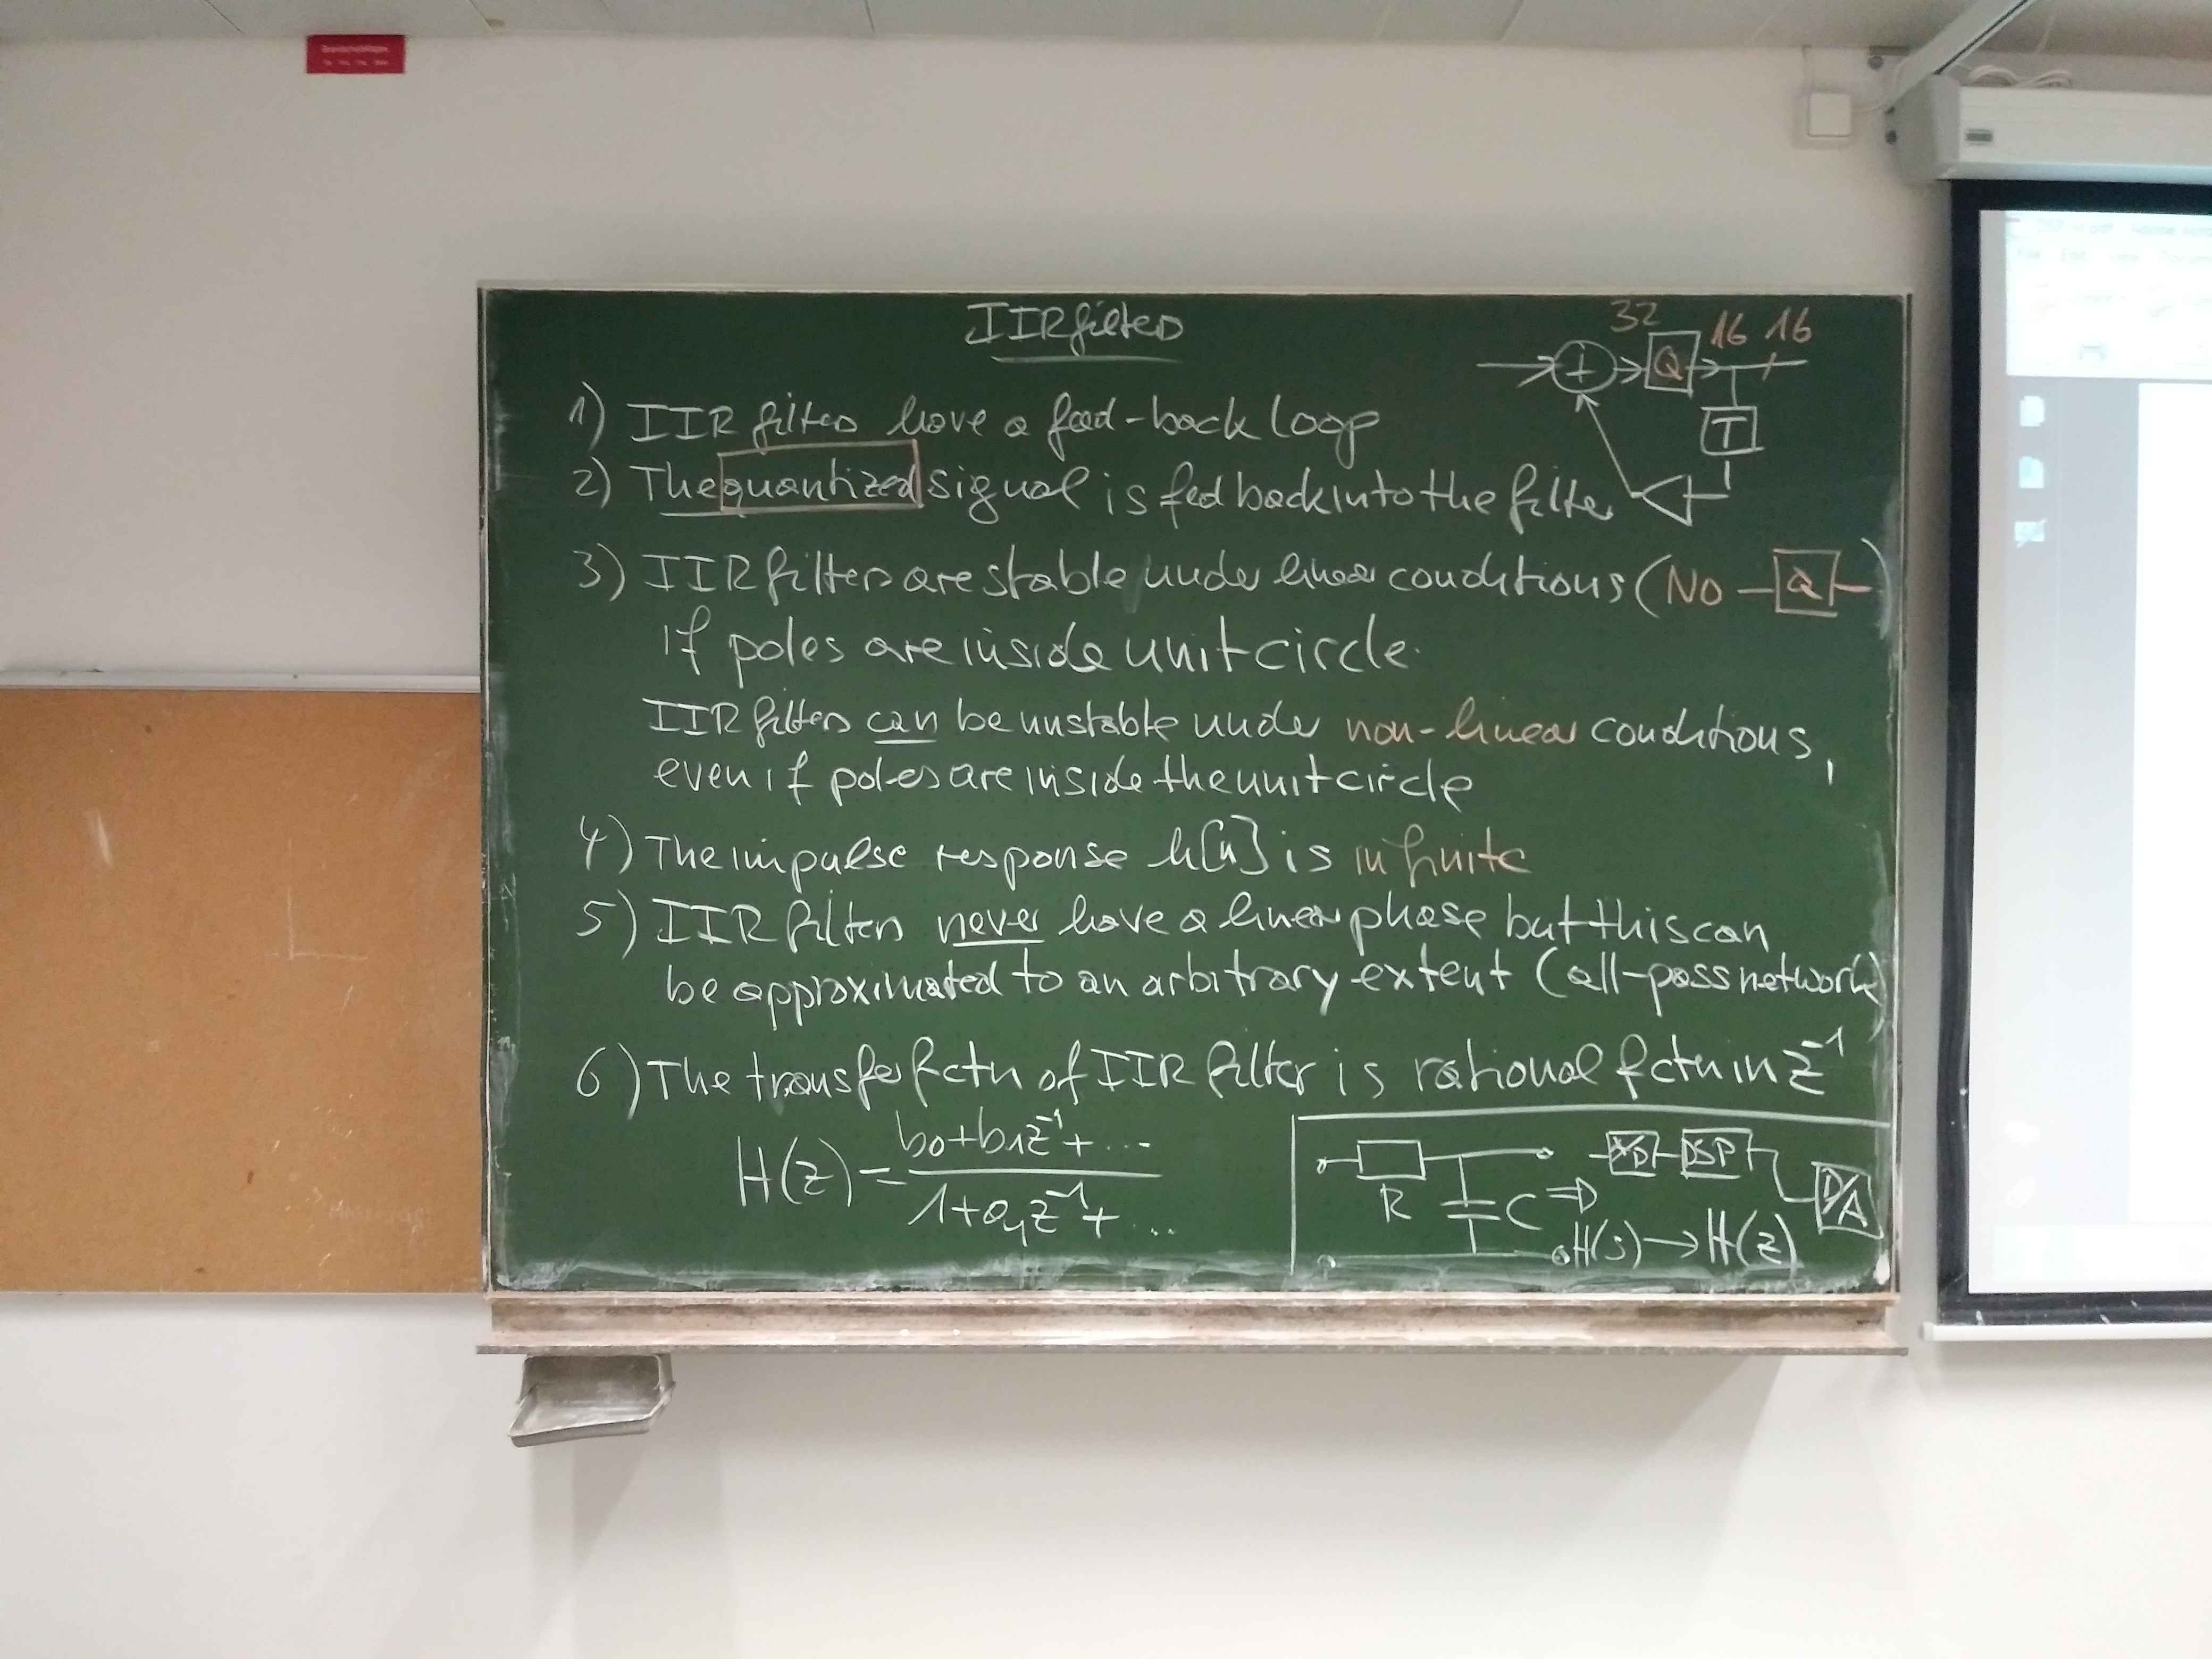 IIR filters
32
16 16
+
Q
T
1) IIR filters have a feed-back loop
2) The quantized signal is fed back into the filter
3) IIR filters are stable under linear conditions (No Q)
if poles are inside unit circle.
IIR filters can be unstable under non-linear conditions,
even if poles are inside the unit circle
4) The impulse response h[n] is infinite
5) IIR filters never have a linear phase but this can
be approximated to an arbitrary extent (all-pass network)
6) The transfer fctn of IIR filter is rational fctn in z⁻¹
H(z) = (b0+b1z⁻¹+...)/(1+a1z⁻¹+...)
R
C
⇒
A/D
DSP
D/A
H(s)→H(z)